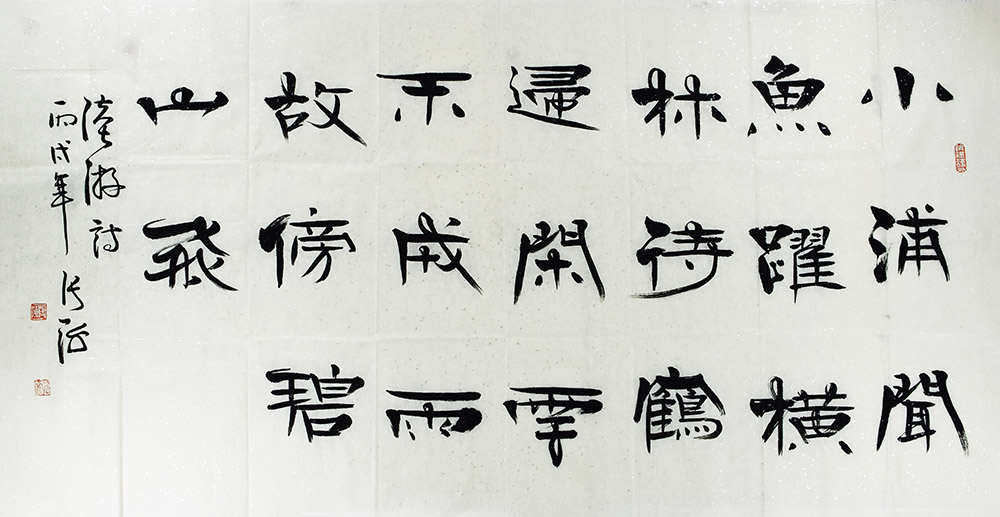 小浦聞
魚躍横
林待鶴
歸閑雲
不成雨
故傍碧
山飛
陸游詩
丙戌年